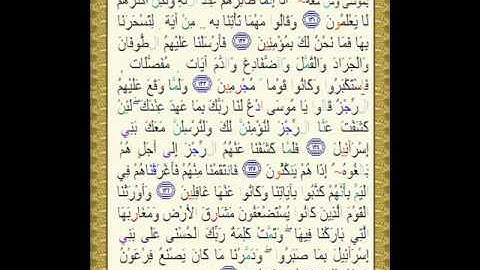 بِمُوسَىٰ وَمَنْ مَعَهُ ۗ أَلَا إِنَّمَا طَائِرُهُمْ عِنْدَ اللَّهِ وَلَٰكِنَّ أَكْثَرَهُمْ
لَا يَعْلَمُونَ ﴿١٣١﴾ وَقَالُوا مَهْمَا تَأْتِنَا بِهِ مِنْ آيَةٍ لِتَسْحَرَنَا
بِهَا فَمَا نَحْنُ لَكَ بِمُؤْمِنِينَ ﴿١٣٢﴾ فَأَرْسَلْنَا عَلَيْهِمُ الطُّوفَانَ
وَالْجَرَادَ وَالْقُمَّلَ وَالضَّفَادِعَ وَالدَّمَ آيَاتٍ مُفَصَّلَاتٍ
فَاسْتَكْبَرُوا وَكَانُوا قَوْمًا مُجْرِمِينَ ﴿١٣٣﴾ وَلَمَّا وَقَعَ عَلَيْهِمُ
الرِّجْزُ قَالُوا يَا مُوسَى ادْعُ لَنَا رَبَّكَ بِمَا عَهِدَ عِنْدَكَ ۖ لَئِنْ
كَشَفْتَ عَنَّا الرِّجْزَ لَنُؤْمِنَنَّ لَكَ وَلَنُرْسِلَنَّ مَعَكَ بَنِي
إِسْرَائِيلَ ﴿١٣٤﴾ فَلَمَّا كَشَفْنَا عَنْهُمُ الرِّجْزَ إِلَىٰ أَجَلٍ هُمْ
بَالِغُوهُ إِذَا هُمْ يَنْكُثُونَ ﴿١٣٥﴾ فَانْتَقَمْنَا مِنْهُمْ فَأَغْرَقْنَاهُمْ فِي
الْيَمِّ بِأَنَّهُمْ كَذَّبُوا بِآيَاتِنَا وَكَانُوا عَنْهَا غَافِلِينَ ﴿١٣٦﴾ وَأَوْرَثْنَا
الْقَوْمَ الَّذِينَ كَانُوا يُسْتَضْعَفُونَ مَشَارِقَ الْأَرْضِ وَمَغَارِبَهَا
الَّتِي بَارَكْنَا فِيهَا ۖ وَتَمَّتْ كَلِمَةُ رَبِّكَ الْحُسْنَىٰ عَلَىٰ بَنِي
إِسْرَائِيلَ بِمَا صَبَرُوا ۖ وَدَمَّرْنَا مَا كَانَ يَصْنَعُ فِرْعَوْنُ